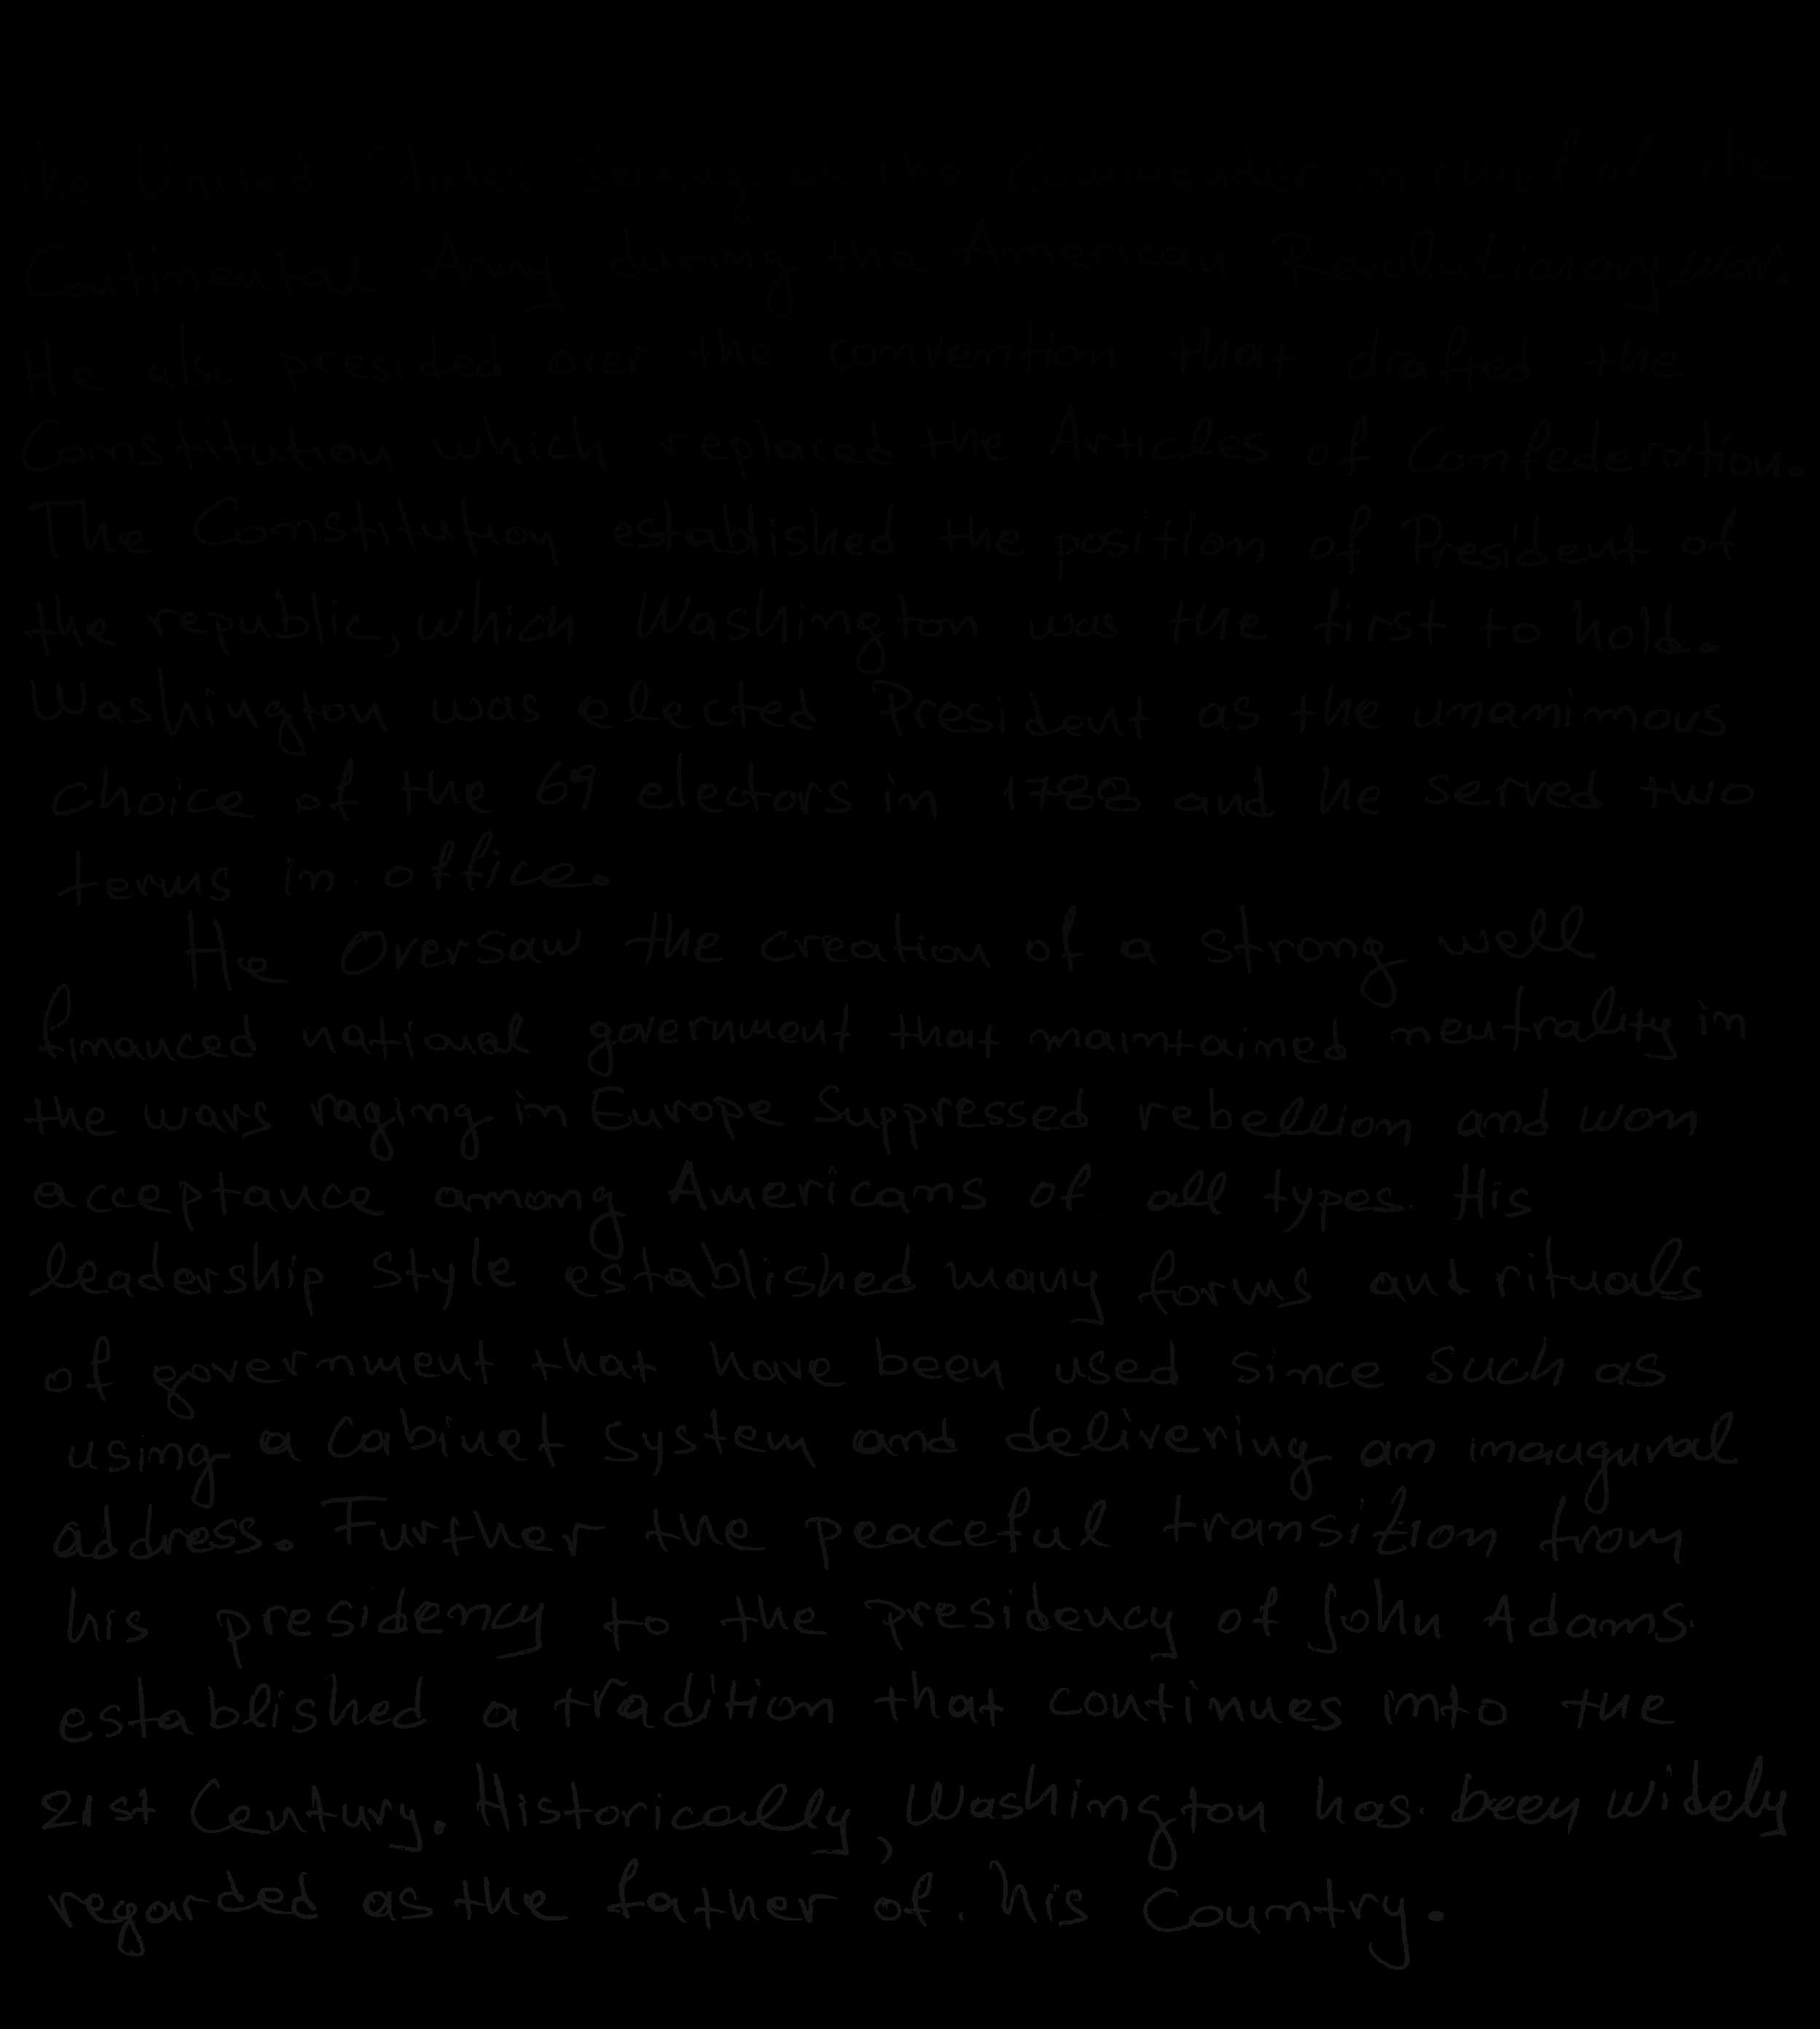 George Washington was one of the Founding Fathers of
the United States Serving as the Commander in chief of the
Continental Army during the American Revolutionary War.
He also presided over the convention that drafted the
Constitution which replaced the Articles of Confederation.
The Constitution established the position of President of
the republic, which Washington was the first to hold.
Washington was elected President as the unanimous
choice of the 69 electors in 1788 and he served two
terms in office.
He Oversaw the creation of a strong well
financed national government that maintained neutrality in
the wars raging in Europe Suppressed rebellion and won
acceptance among Americans of all types. His
leadership style established many forms and rituals
of government that have been used since such as
using a Cabinet System and delivering an inaugural
address. Further the peaceful transition from
his presidency to the presidency of John Adams
established a tradition that continues into the
21st Century. Historically, Washington has been widely
regarded as the father of his Country.